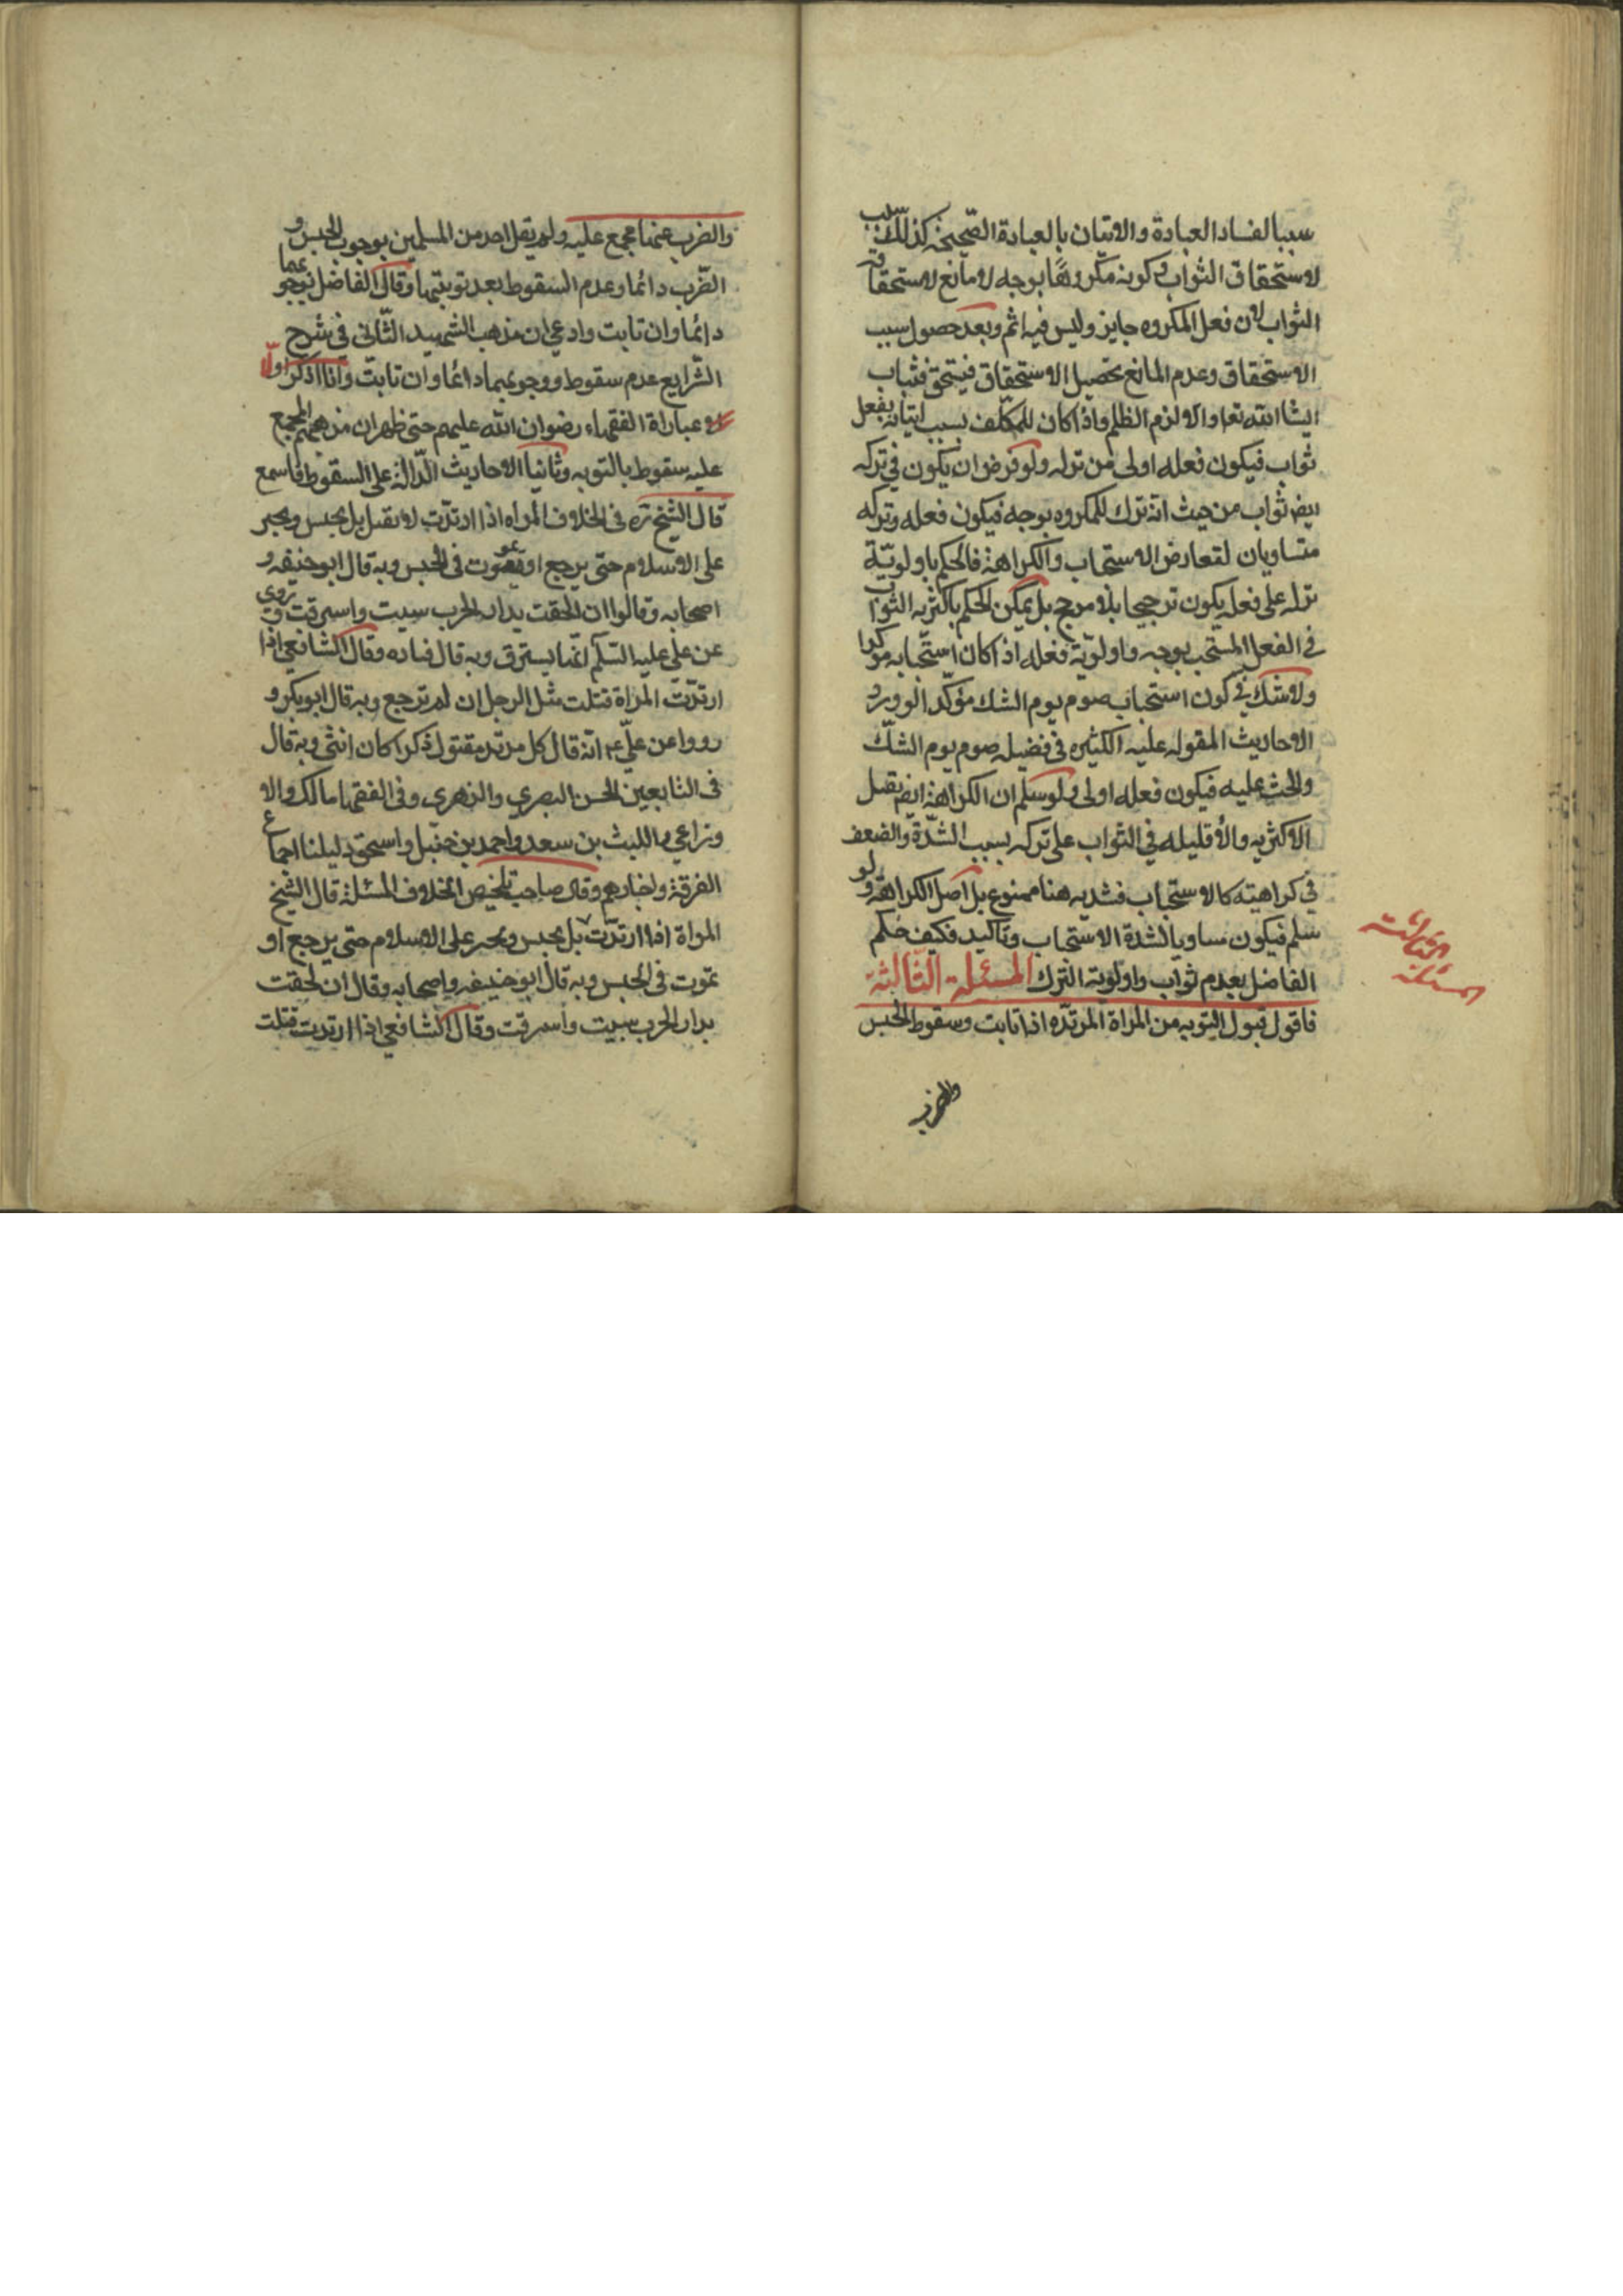 سببا لفساد العبادة والاتيان بالعبادة الصّحيحة كذلك سبب
لاستحقاق الثواب وكونه مكروهًا بوجه لا مانع لاستحقاقه
الثواب لان فعل المكروه جايز وليس فيه اثم وبعد حصول سبب
الاستحقاق وعدم المانع تحصيل الاستحقاق فيستحق فثياب
انشا الله تعا والا لزم الظلم واذا كان للمكلّف بسبب اتيانه بفعل
ثواب فيكون فعله اولى من تركه ولو فرض ان يكون في تركه
ايضا ثواب من حيث انه ترك للمكروه بوجه فيكون فعله وتركه
متساويان لتعارض الاستحباب والكراهة فالحكم باولويّة
تركه على فعله يكون ترجيحا بلا مرجح بل يمكن الحكم باكثريه الثواب
في الفعل المستحب بوجه واولويّة فعله اذ اكان استحبابه مؤكدا
ولا شك في كون استحباب صوم يوم الشك مؤكّدا لورود
الاحاديث المقوله عليه الكثيره في فضيله صوم يوم الشكّ
والحث عليه فيكون فعله اولى ولو سلم ان الكراهة ايضا يقبل
الاكثريه والاقليله في الثواب على تركه بسبب الشدّة والضعف
في كراهيته كالاستحباب فشديه هنا ممنوع بل اصل الكراهة ولو
سلم فيكون مساويا لشدة الاستحباب وتاكيد فكيف حكم
الفاضل بعدم ثواب واولوية الترك المسئلة الثالثة
فاقول قبول التوبه من المراة المرتدّه اذا تابت وسقوط الحبس
والضرب
المسئلة الثالثة
والضرب عنها مجمع عليه ولم يقل احد من المسلمين بوجوب الحبس و
الضّرب دائما وعدم السقوط بعد توبتها وقال الفاضل بوجوبهما
دائما وان تابت وادعى ان مذهب الشهيد الثّاني في شرح
الشرايع عدم سقوط ووجوبهما دائما وان تابت وانا اذكر اولًا
عباراة الفقهاء رضوان الله عليهم حتى ظهر ان مذهبهم المجمع
عليه سقوط بالتوبه وثانيا الاحاديث الدّالة على السقوط فاسمع
قال الشيخ ره فى الخلاف المراه اذا ارتدّت لا تقبل بل يحبس ويجبر
على الاسلام حتى يرجع او يموت فى الحبس وبه قال ابو حنيفه و
اصحابه وقالوا ان لحقت بدار الحرب سبيت واسترقت وروى
عن على عليه السّلم انّما يسترق وبه قال قتاده وقال الشافعي اذا
ارتدّت المراة قتلت مثل الرجل ان لم ترجع وبه قال ابو بكر و
رووا عن علىّ ع انّه قال كل مرتد مقتول ذكرا كان انثى وبه قال
فى التابعين الحسن البصري والزهري وفى الفقها مالك والا
وزاعي والليث بن سعد واحمد بن حنبل واسحق دليلنا اجماع
الفرقة واخبارهم وقال صاحب تلخيص الخلاف المسئلة قال الشيخ
المراة اذا ارتدّت بل يحبس ويجبر على الاسلام حتى يرجع او
تموت فى الحبس وبه قال ابو حنيفه واصحابه وقال ان لحقت
بدار الحرب سبيت واسترقت وقال الشافعي اذا ارتدت قتلت